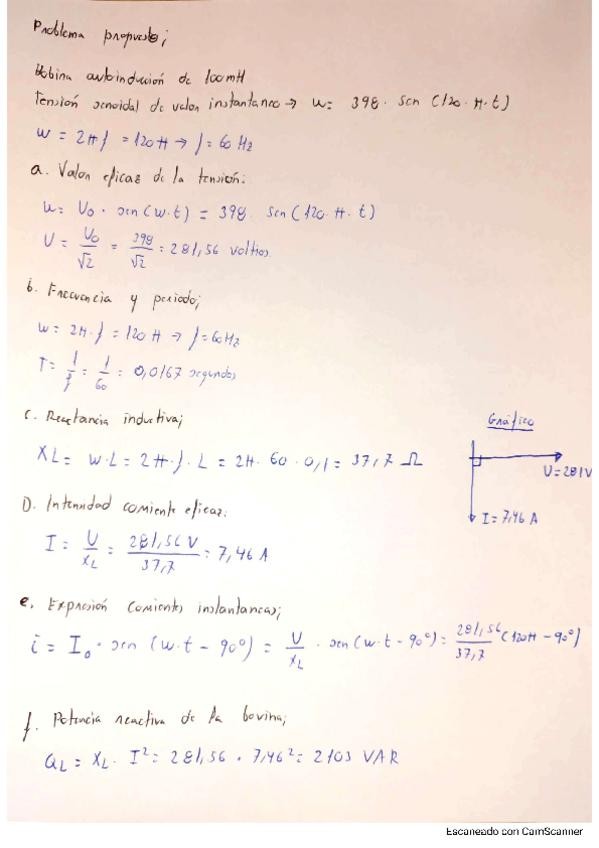 Problema propuesto;
Bobina autoinducion de 100mH
Tensión senoidal de valor instantaneo → u= 398 · sen (120 · π · t)
w = 2π f = 120π → f = 60 Hz
a. Valor eficaz de la tensión:
u = U₀ · sen (w · t) = 398 · sen (120 π · t)
U = U₀/√2 = 398/√2 = 281,56 voltios
b. Frecuencia y periodo;
w = 2π · f = 120π → f = 60Hz
T = 1/f = 1/60 = 0,0167 segundos
c. Reactancia inductiva;
XL = w · L = 2π · f · L = 2π · 60 · 0,1 = 37,7 Ω
Gráfico
U = 281V
I = 7,46 A
D. Intensidad corriente eficaz:
I = U/XL = 281,56 V/37,7 = 7,46 A
e. Expresión corrientes instantaneas;
i = I₀ · sen (w · t − 90º) = U/XL · sen (w · t − 90º) = 281,56/37,7 (120π − 90º)
f. Potencia reactiva de la bovina;
QL = XL · I² = 281,56 · 7,46² = 2103 VAR
Escaneado con CamScanner